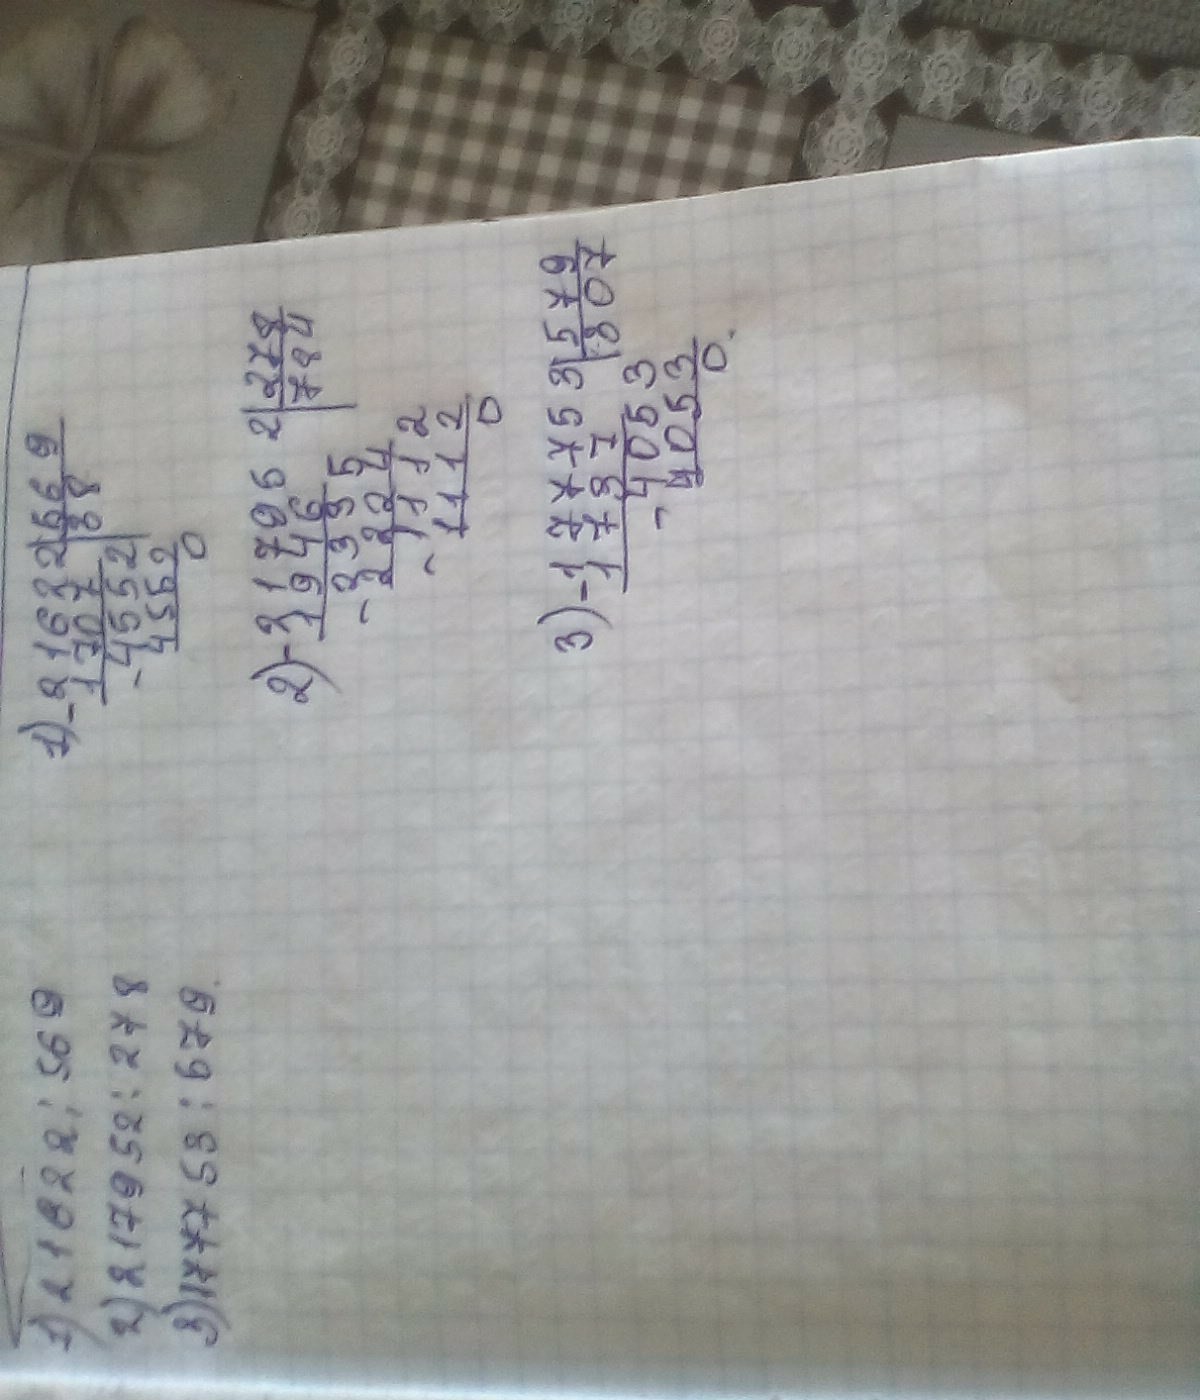 1) 21622 : 569
2) 217952 : 278
3) 177753 : 579.
1) -21622|569
1707|38
-4552
4552
0
2) -217952|278
1946|784
-2335
2224
-1112
1112
0
3) -177753|579
1737|307
-4053
4053
0.